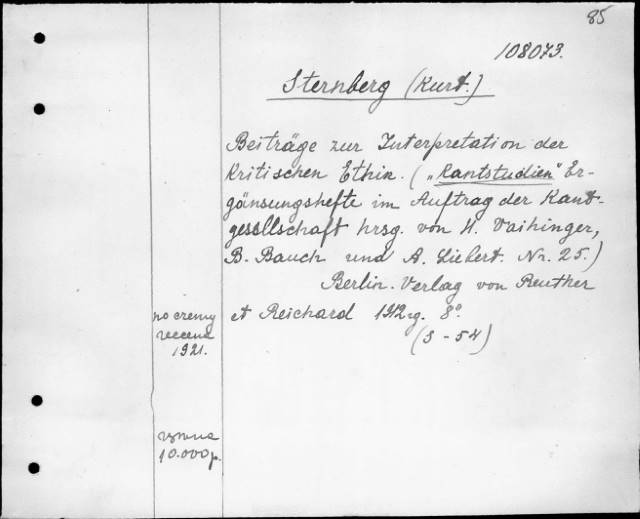 85
108073.
Sternberg (Kurt.)
Beiträge zur Interpretation der
Kritischen Ethik. („Kantstudien" Er-
gänsungshefte im Auftrag der Kant-
gesellschaft hrsg. von H. Vaihinger,
B. Bauch und A. Liebert. Nr. 25.)
Berlin. Verlag von Reuther
et Reichard 1912 g. 8°.
(S - 54)
по счету
1921.
10.000 р.